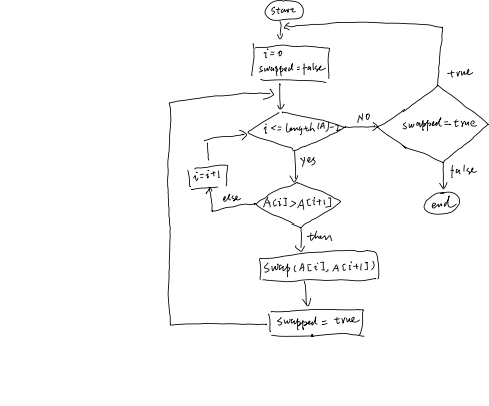 start
i=0
swapped=false
i <= length(A)-1
NO
swapped=true
true
false
end
yes
i=i+1
else
A[i]>A[i+1]
then
Swap(A[i],A[i+1])
swapped = true